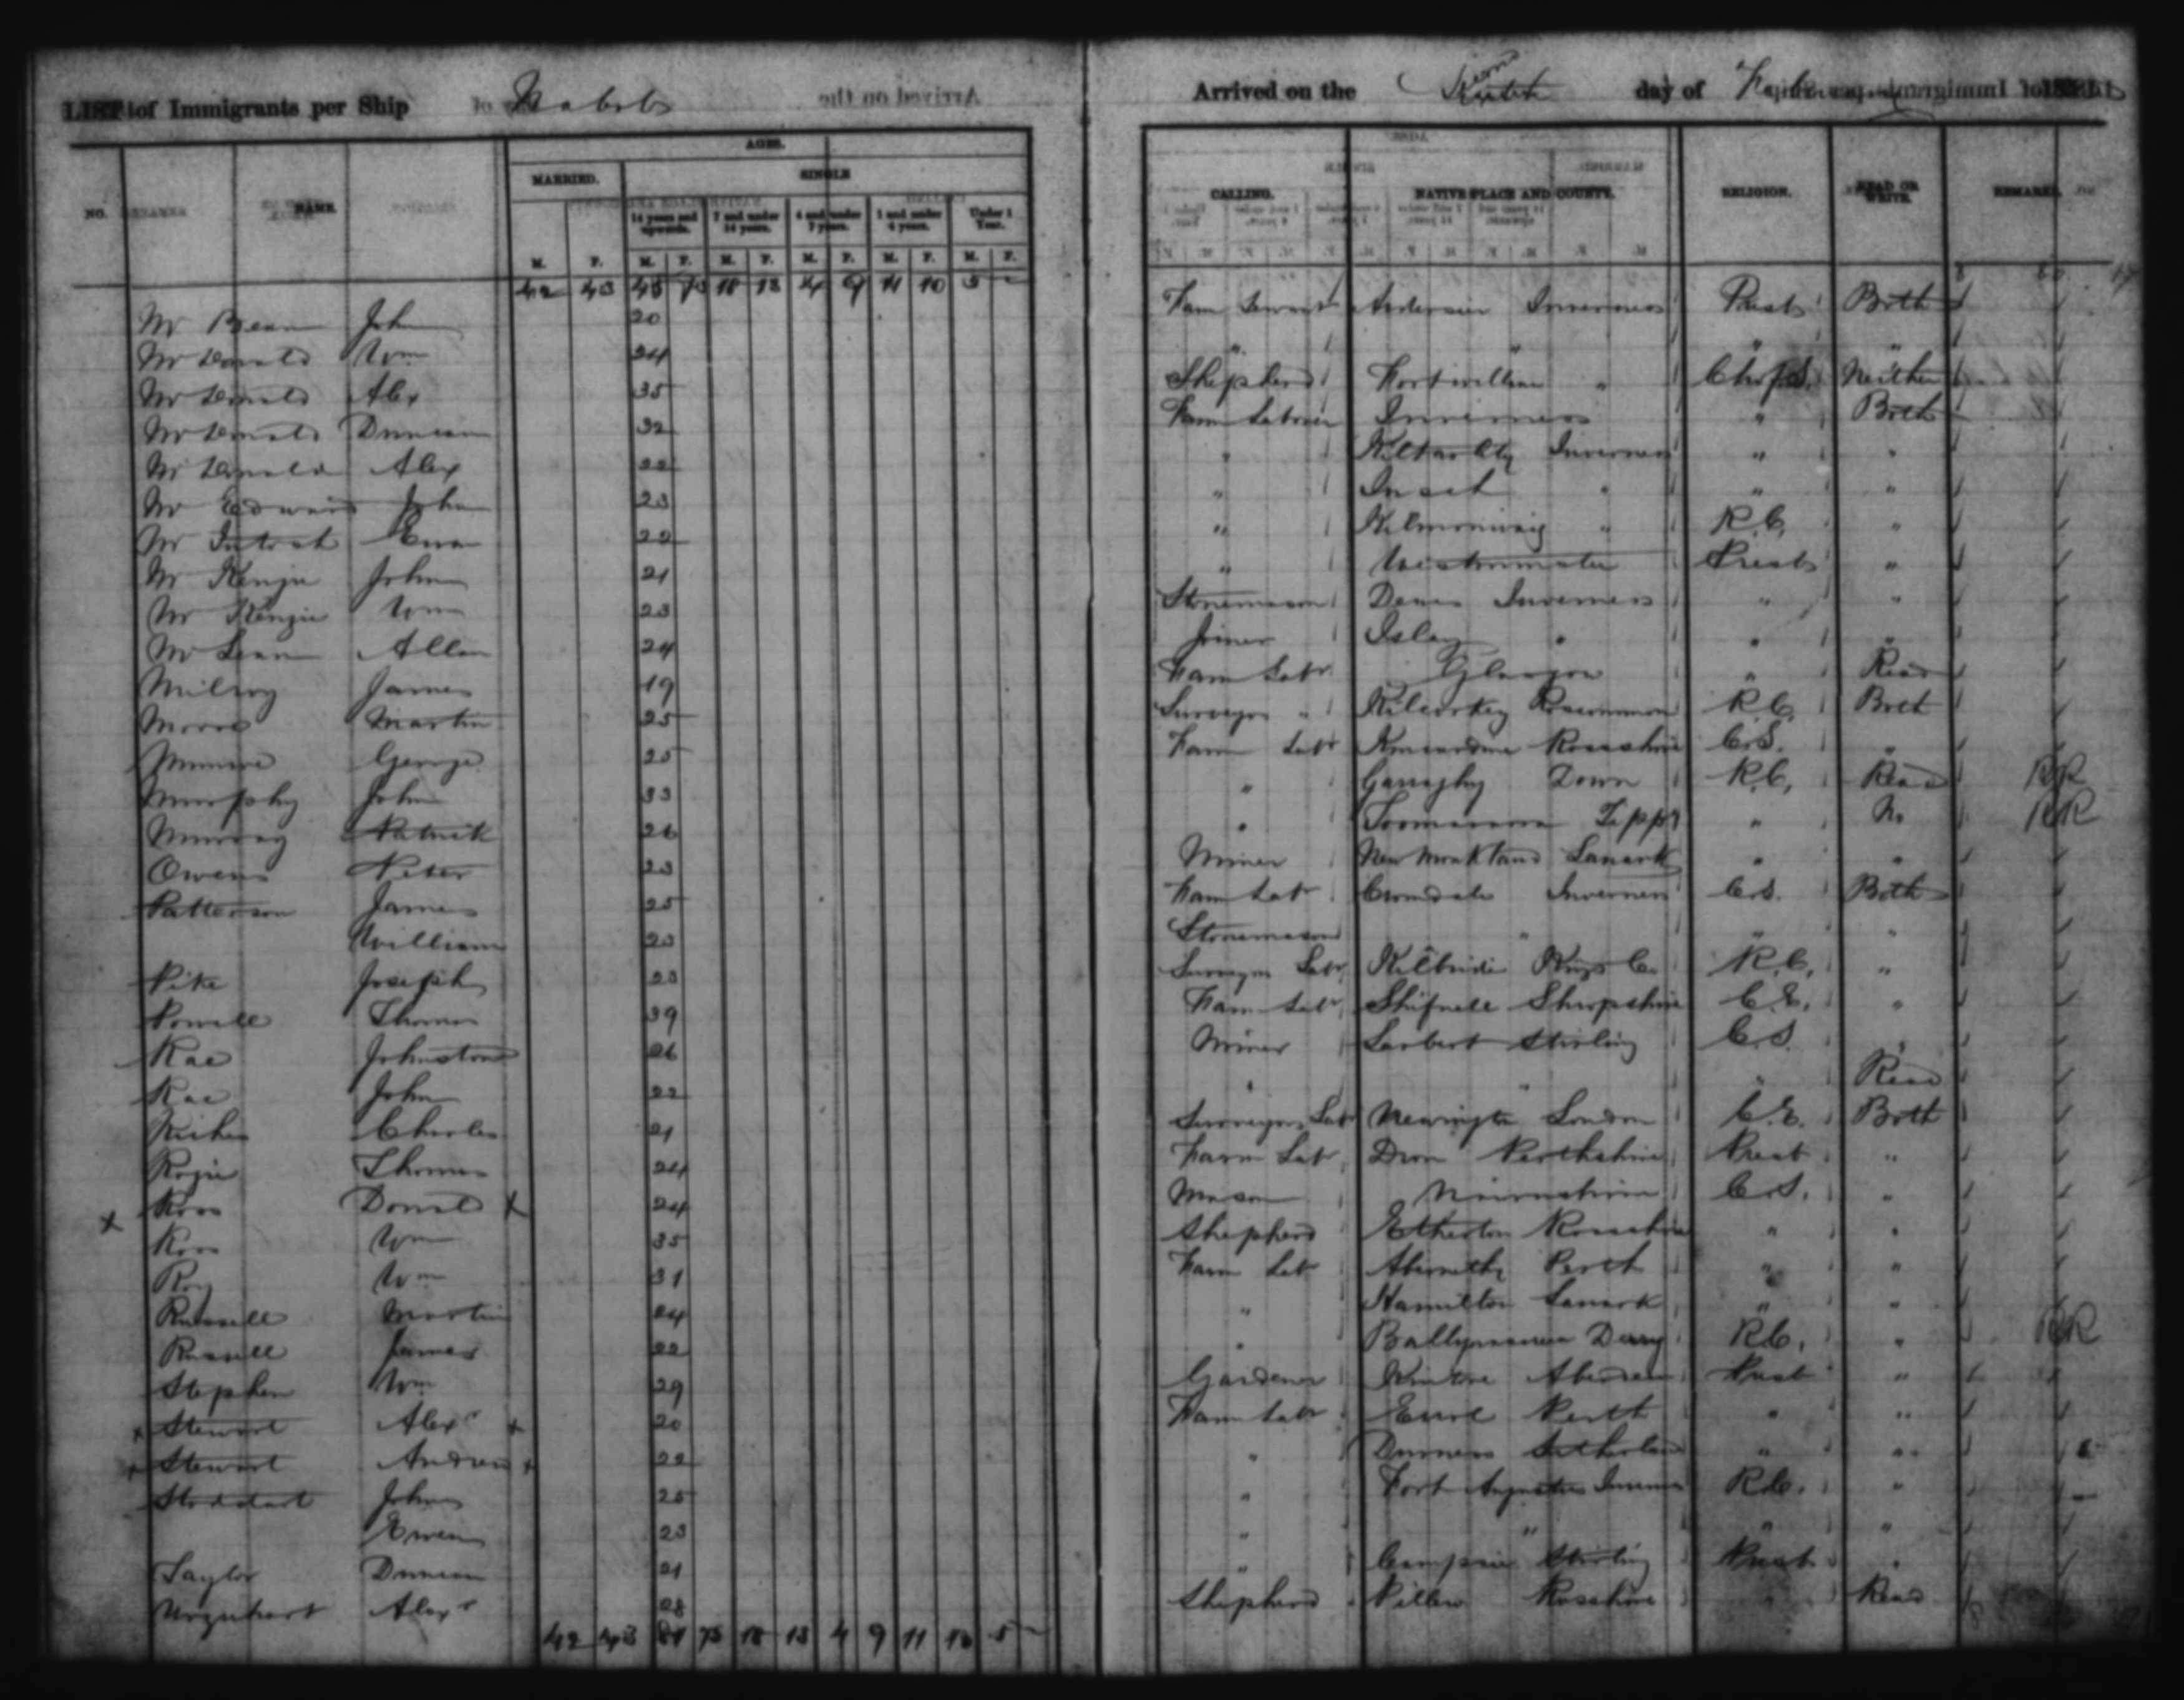 LIST of Immigrants per Ship Nabob
Arrived on the day of
NO. NAME. AGES. CALLING. NATIVE PLACE AND COUNTY. RELIGION. READ OR WRITE. REMARKS.
MARRIED. SINGLE
14 years and upwards. 7 and under 14 years. 4 and under 7 years. 1 and under 4 years. Under 1 Year.
M. F. M. F. M. F. M. F. M. F. M. F.
42 43 45 75 18 13 4 9 11 10 5 -
Mc Bean John 20 Farm Servant Inverness Presb Both
Mc Donald Wm 24 " " " "
Mc Donald Alex 35 Shepherd Fortwilliam " Ch of S. Neither
Mc Donald Duncan 32 Farm Labourer Inverness " Both
Mc Donald Alex 22 " Kiltarlity Inverness " "
Mc Edward John 23 " Insch " " "
Mc Intosh Ewan 22 " Kilmonivaig " R.C. "
Mc Kenzie John 21 " Westminster Presb "
Mc Kenzie Wm 23 Stonemason Inverness " "
Mc Lean Allan 24 Joiner Islay " " "
Milroy James 19 Farm Labr Glasgow " Read
Moore Martin 25 Surveyor " Roscommon R.C. Both
Munroe George 25 Farm Labr Kincardine Rossshire C.S. "
Murphy John 33 " Down R.C. Read RR
Murray Patrick 26 " Tippy " No RR
Owens Peter 23 Miner New Monkland Lanark " "
Patterson James 25 Farm Labr Cromdale Inverness C.S. Both
William 23 Stonemason " " "
Pike Joseph 23 Surveyors Labr Kilbride Kings Co R.C. "
Powell Thomas 39 Farm Labr Shifnell Shropshire C.E. "
Rae Johnston 26 Miner Larbert Stirling C.S. "
Rae John 22 " " " Read
Charles 21 Surveyors Labr Newington London C.E. Both
Thomas 24 Farm Labr Dron Perthshire Presb "
x Ross Donald x 24 Mason Nairnshire C.S. "
Ross Wm 35 Shepherd Rossshire " "
Roy Wm 31 Farm Labr Abernethy Perth " "
Russell Martin 24 " Hamilton Lanark " "
Russell James 22 " Derry R.C. " RR
Stephen Wm 29 Gardener Kintore Aberdeen Presb "
x Stewart Alexr x 20 Farm Labr Perth " "
x Stewart Andrew x 22 " Durness Sutherland " "
Stoddart John 25 " Fort Augustus Inverness R.C. "
Ewen 23 " " " "
Taylor Duncan 21 " Campsie Stirling Presb "
Urquhart Alexr 28 Shepherd Rossshire " Read
42 43 81 75 18 13 4 9 11 10 5 -